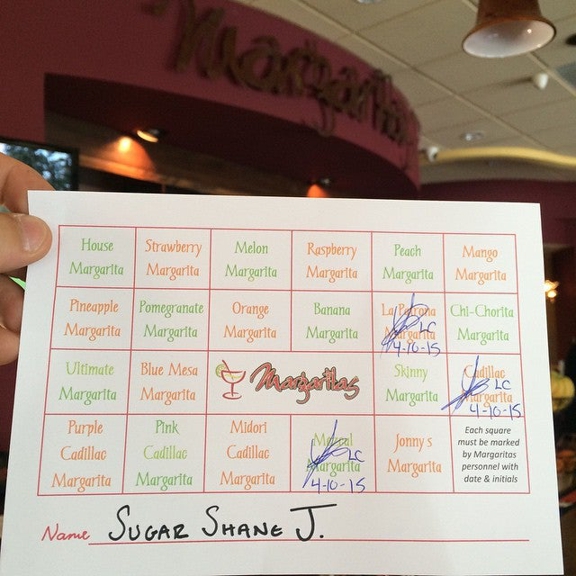 Margaritas
House
Margarita
Strawberry
Margarita
Melon
Margarita
Raspberry
Margarita
Peach
Margarita
Mango
Margarita
Pineapple
Margarita
Pomegranate
Margarita
Orange
Margarita
Banana
Margarita
La Patrona
Margarita
LC
4-10-15
Chi-Chorita
Margarita
Ultimate
Margarita
Blue Mesa
Margarita
Margaritas
Skinny
Margarita
Cadillac
Margarita
LC
4-10-15
Purple
Cadillac
Margarita
Pink
Cadillac
Margarita
Midori
Cadillac
Margarita
Mezcal
Margarita
LC
4-10-15
Jonny s
Margarita
Each square
must be marked
by Margaritas
personnel with
date & initials
Name SUGAR SHANE J.